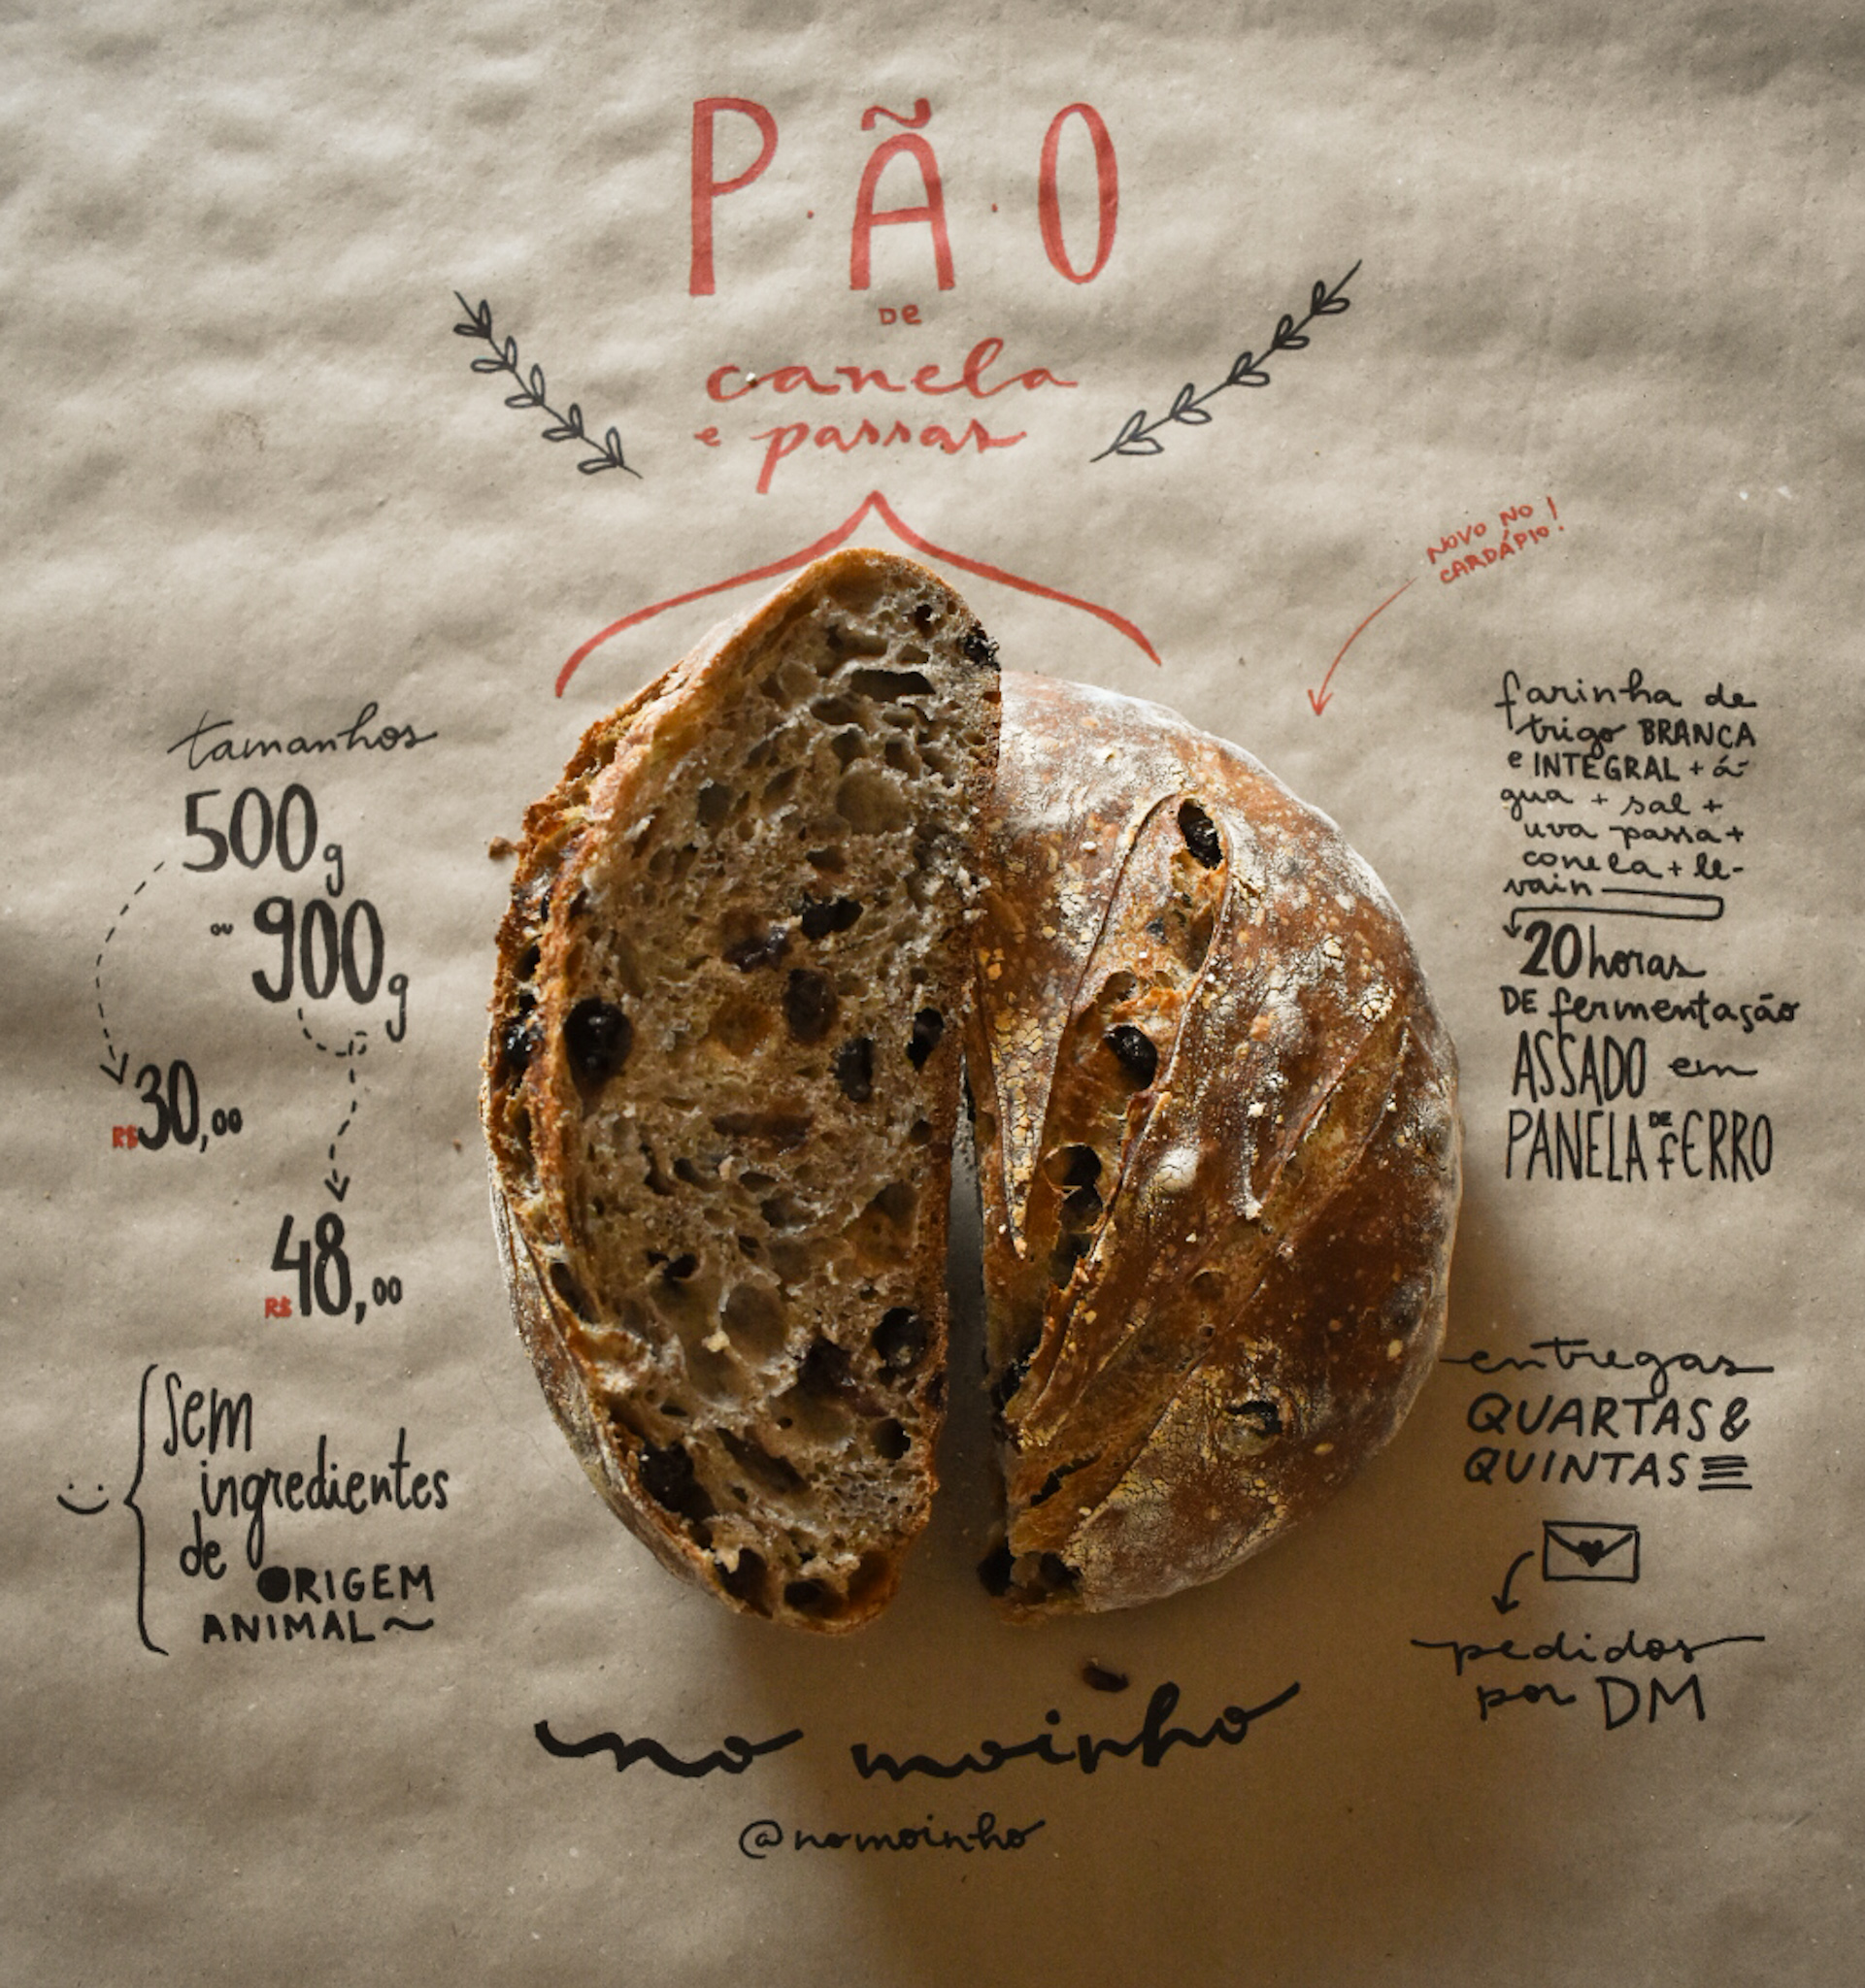 PÃO
DE
canela
e passas
NOVO NO
CARDÁPIO!
tamanhos
500g
ou 900g
R$30,00
R$48,00
sem
ingredientes
de
ORIGEM
ANIMAL~
farinha de
trigo BRANCA
e INTEGRAL + á-
gua + sal +
uva passa +
canela + le-
vain
20 horas
DE fermentação
ASSADO em
PANELA DE FERRO
entregas
QUARTAS &
QUINTAS
pedidos
por DM
no moinho
@nomoinho